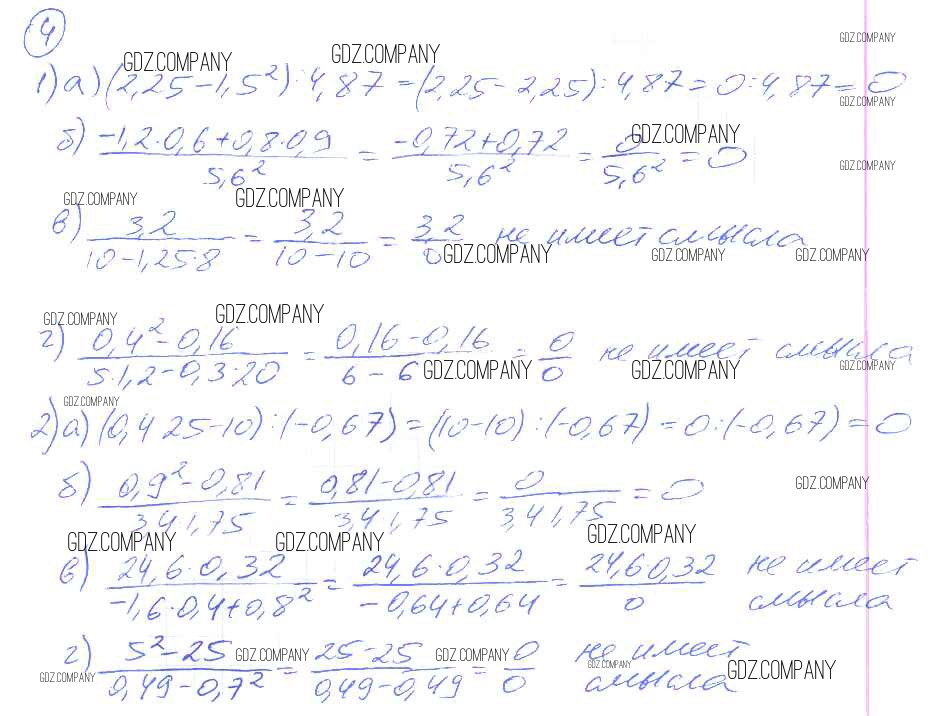 4
GDZ.COMPANY GDZ.COMPANY GDZ.COMPANY
1) а) (2,25 - 1,5²) : 4,87 = (2,25 - 2,25) : 4,87 = 0 : 4,87 = 0
GDZ.COMPANY
б) (-1,2·0,6+0,8·0,9)/5,6² = (-0,72+0,72)/5,6² = 0/5,6² = 0
GDZ.COMPANY GDZ.COMPANY
GDZ.COMPANY GDZ.COMPANY
в) 3,2/(10-1,25·8) = 3,2/(10-10) = 3,2/0 не имеет смысла
GDZ.COMPANY GDZ.COMPANY GDZ.COMPANY
GDZ.COMPANY GDZ.COMPANY
г) (0,4²-0,16)/(5·1,2-0,3·20) = (0,16-0,16)/(6-6) = 0/0 не имеет смысла
GDZ.COMPANY GDZ.COMPANY GDZ.COMPANY
GDZ.COMPANY
2) а) (0,4 25-10) : (-0,67) = (10-10) : (-0,67) = 0 : (-0,67) = 0
б) (0,9²-0,81)/(3,41,75) = (0,81-0,81)/(3,41,75) = 0/(3,41,75) = 0
GDZ.COMPANY
GDZ.COMPANY GDZ.COMPANY GDZ.COMPANY
в) (24,6·0,32)/(-1,6·0,4+0,8²) = (24,6·0,32)/(-0,64+0,64) = (24,6·0,32)/0 не имеет
смысла
г) (5²-25)/(0,49-0,7²) = (25-25)/(0,49-0,49) = 0/0 не имеет
смысла
GDZ.COMPANY GDZ.COMPANY GDZ.COMPANY
GDZ.COMPANY GDZ.COMPANY